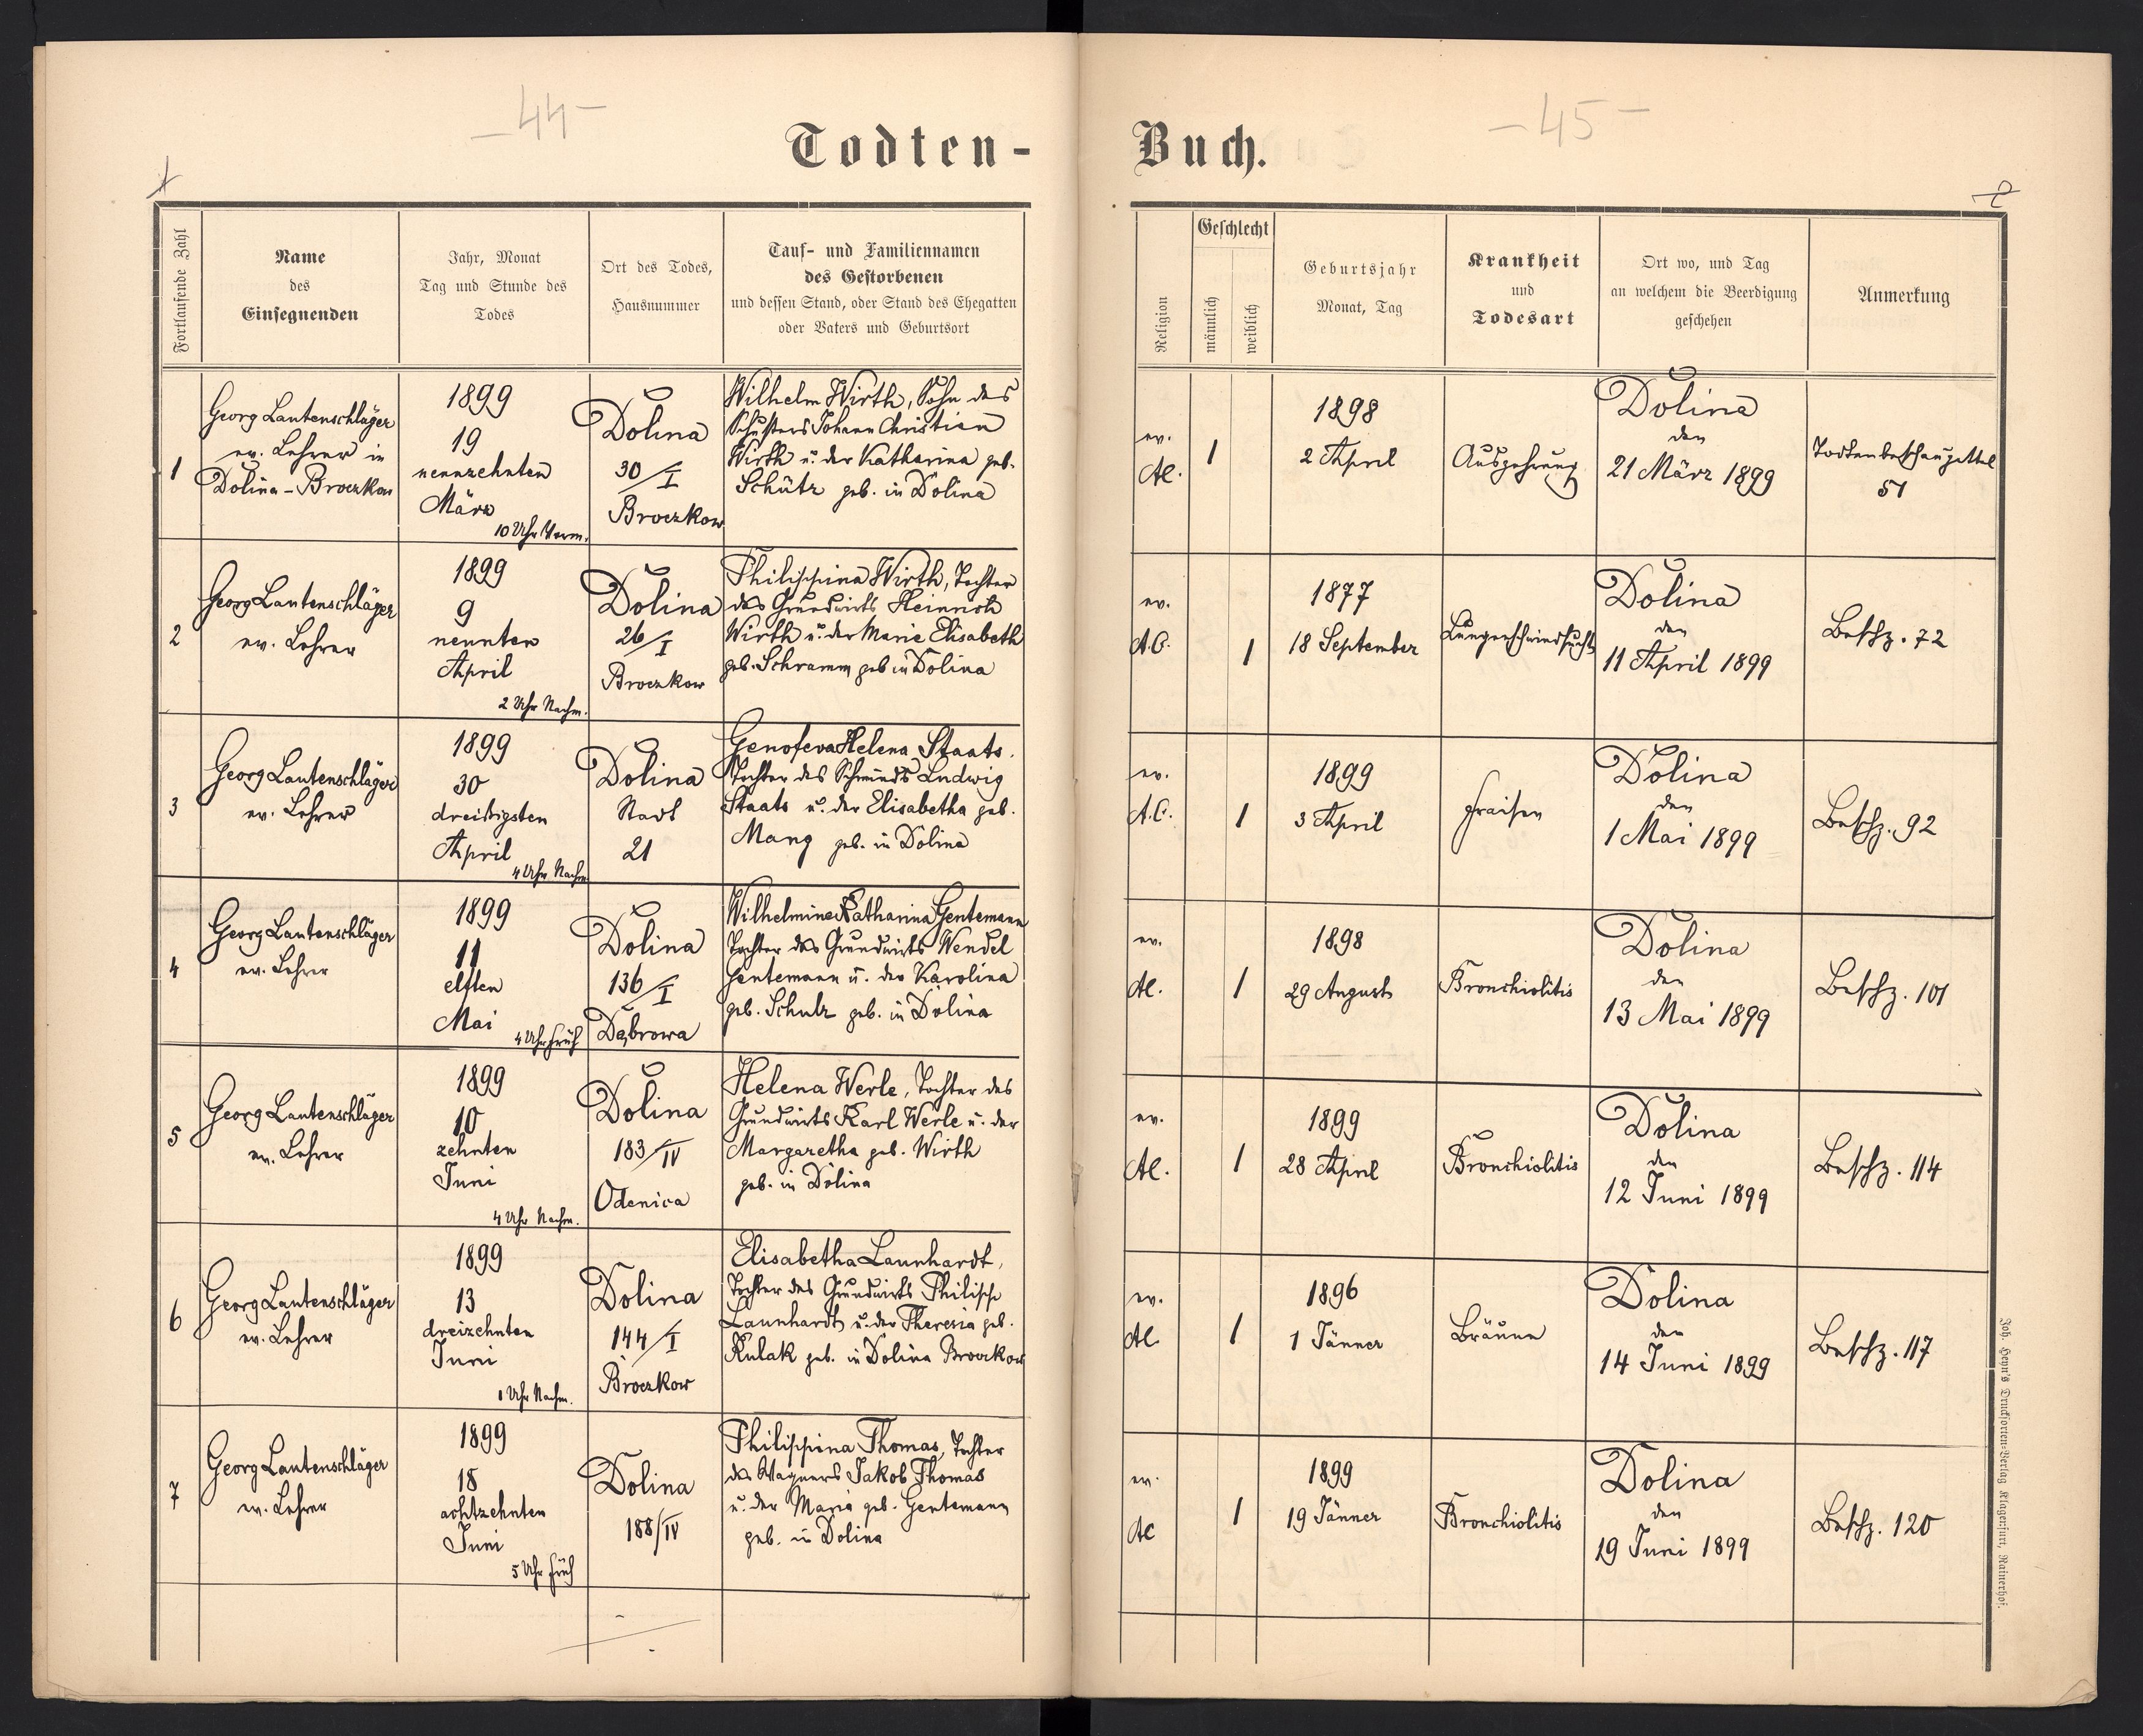 -44-
-45-
Todten-
Buch.
1
2
Fortlaufende Zahl
Name
des
Einsegnenden
Jahr, Monat
Tag und Stunde des
Todes
Ort des Todes,
Hausnummer
Tauf- und Familiennamen
des Gestorbenen
und dessen Stand, oder Stand des Ehegatten
oder Vaters und Geburtsort
Religion
Geschlecht
männlich
weiblich
Geburtsjahr
Monat, Tag
Krankheit
und
Todesart
Ort wo, und Tag
an welchem die Beerdigung
geschehen
Anmerkung
1
Georg Lautenschläger
ev. Lehrer in
Dolina-Broczkow
1899
19
neunzehnten
März
10 Uhr Vorm.
Dolina
30/I
Broczkow
Wilhelm Wirth, Sohn des
Schusters Johann Christian
Wirth u. der Katharina geb.
Schütz geb. in Dolina
ev.
AC.
1
1898
2 April
Auszehrung
Dolina
den
21 März 1899
Todtenbeschauzettel
51
2
Georg Lautenschläger
ev. Lehrer
1899
9
neunten
April
2 Uhr Nachm.
Dolina
26/I
Broczkow
Philippina Wirth, Tochter
des Grundwirts Heinrich
Wirth u. der Marie Elisabeth
geb. Schramm geb in Dolina
ev.
A.C.
1
1877
18 September
Lungenschwindsucht
Dolina
den
11 April 1899
Beschz. 72
3
Georg Lautenschläger
ev. Lehrer
1899
30
dreißigsten
April
4 Uhr Nachm
Dolina
Stadt
21
Genofeva Helena Staats.
Tochter des Schmieds Ludwig
Staats u. der Elisabetha geb.
Mang geb. in Dolina
ev.
A.C.
1
1899
3 April
Fraisen
Dolina
den
1 Mai 1899
Beschz. 92
4
Georg Lautenschläger
ev. Lehrer
1899
11
elften
Mai
4 Uhr früh
Dolina
136/I
Dąbrowa
Wilhelmine Katharina Gentemann
Tochter des Grundwirts Wendel
Gentemann u. der Karolina
geb. Schulz geb. in Dolina
ev.
AC.
1
1898
29 August
Bronchiolitis
Dolina
den
13 Mai 1899
Beschz. 101
5
Georg Lautenschläger
ev. Lehrer
1899
10
zehnten
Juni
4 Uhr Nachm.
Dolina
183/IV
Odenica
Helena Werle, Tochter des
Grundwirts Karl Werle u. der
Margaretha geb. Wirth
geb. in Dolina
ev.
AC.
1
1899
28 April
Bronchiolitis
Dolina
den
12 Juni 1899
Beschz. 114
6
Georg Lautenschläger
ev. Lehrer
1899
13
dreizehnten
Juni
1 Uhr Nachm.
Dolina
144/I
Broczkow
Elisabetha Launhardt,
Tochter des Grundwirts Philipp
Launhardt u. der Theresia geb.
Kulak geb. in Dolina Broczkow
ev.
AC.
1
1896
1 Jänner
Bräune
Dolina
den
14 Juni 1899
Beschz. 117
7
Georg Lautenschläger
ev. Lehrer
1899
18
achtzehnten
Juni
5 Uhr früh
Dolina
188/IV
Philippina Thomas, Tochter
des Wagners Jakob Thomas
u. der Maria geb. Gentemann
geb. in Dolina
ev.
AC
1
1899
19 Jänner
Bronchiolitis
Dolina
den
19 Juni 1899
Beschz. 120
Joh. Heyn's Drucksorten-Verlag Klagenfurt, Rainerhof.